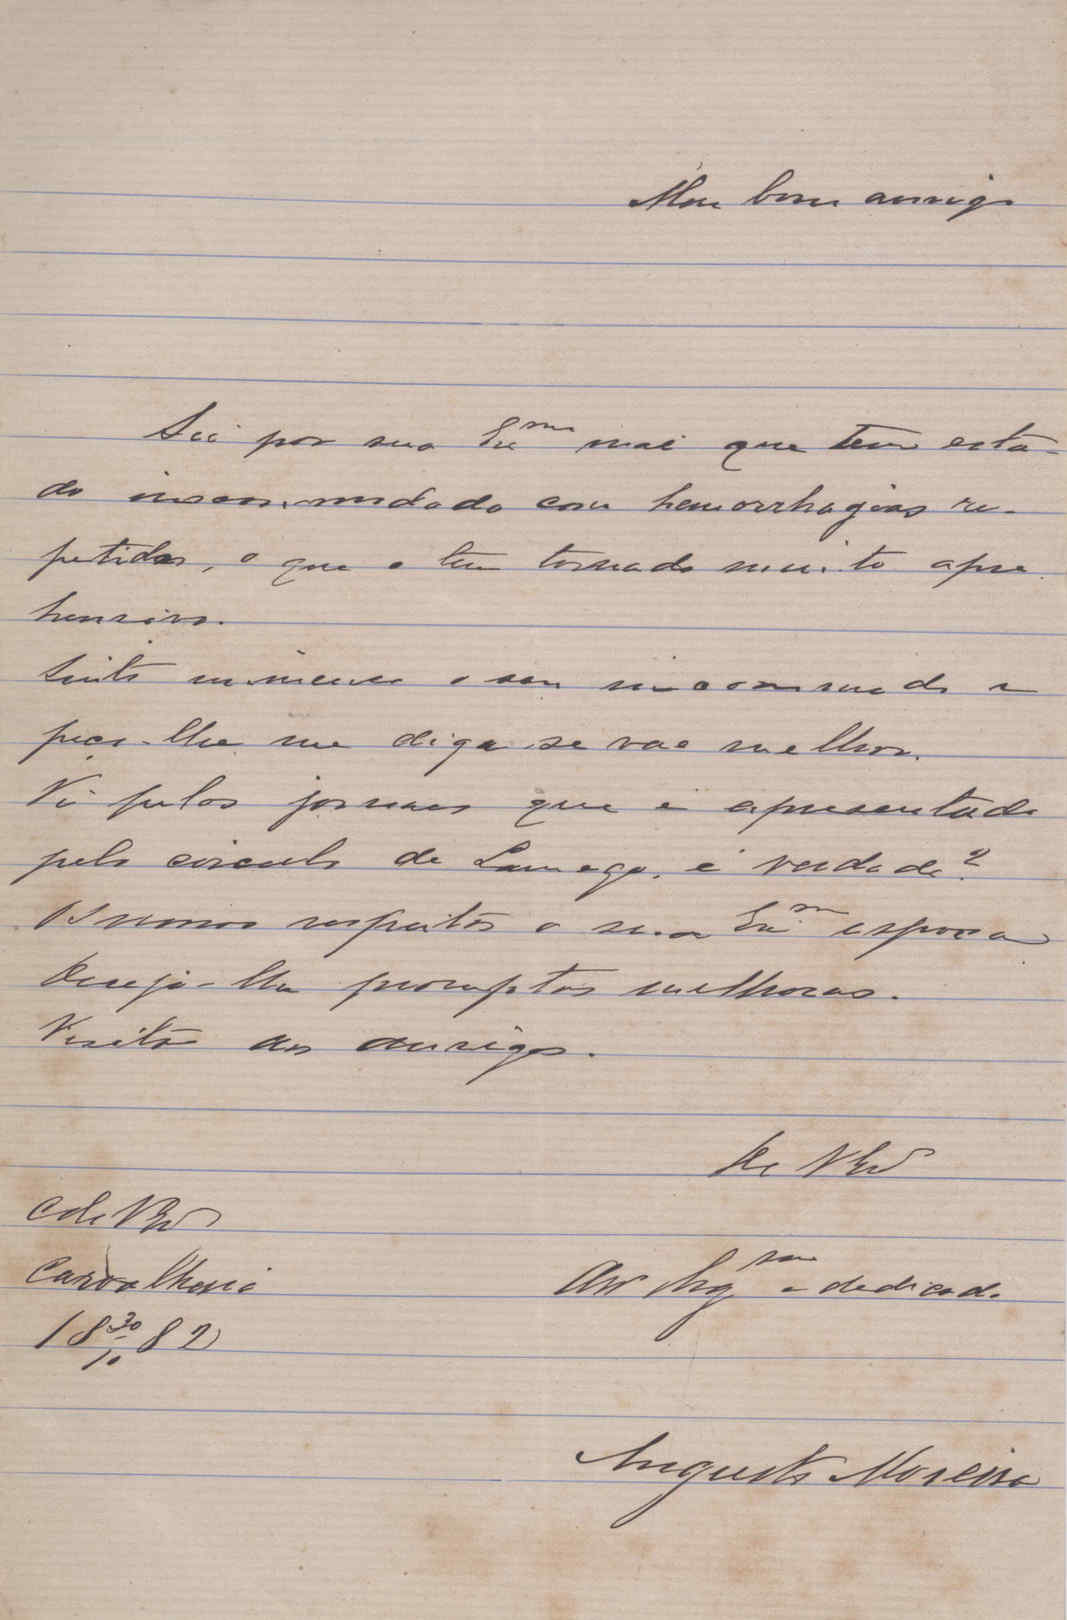 Meu bom amigo
Sei por sua Exma mãe que tem esta-
do incommodado com hemorrhagias re-
petidas, o que o tem tornado muito apre
hensivo.
Sinto immenso o seu incommodo e
peço-lhe me diga se vae melhor.
Vi pelos jornaes que é apresentado
pelo circulo de Lamego, é verdade?
Os nossos respeitos a sua Exma esposa
Desejo-lhe promptas melhoras.
Visita aos amigos.
De V Exª
C de V Exª
Carvalhosa
18 30/10 82
Amº Obgmo e dedicado
Augusto Moreira